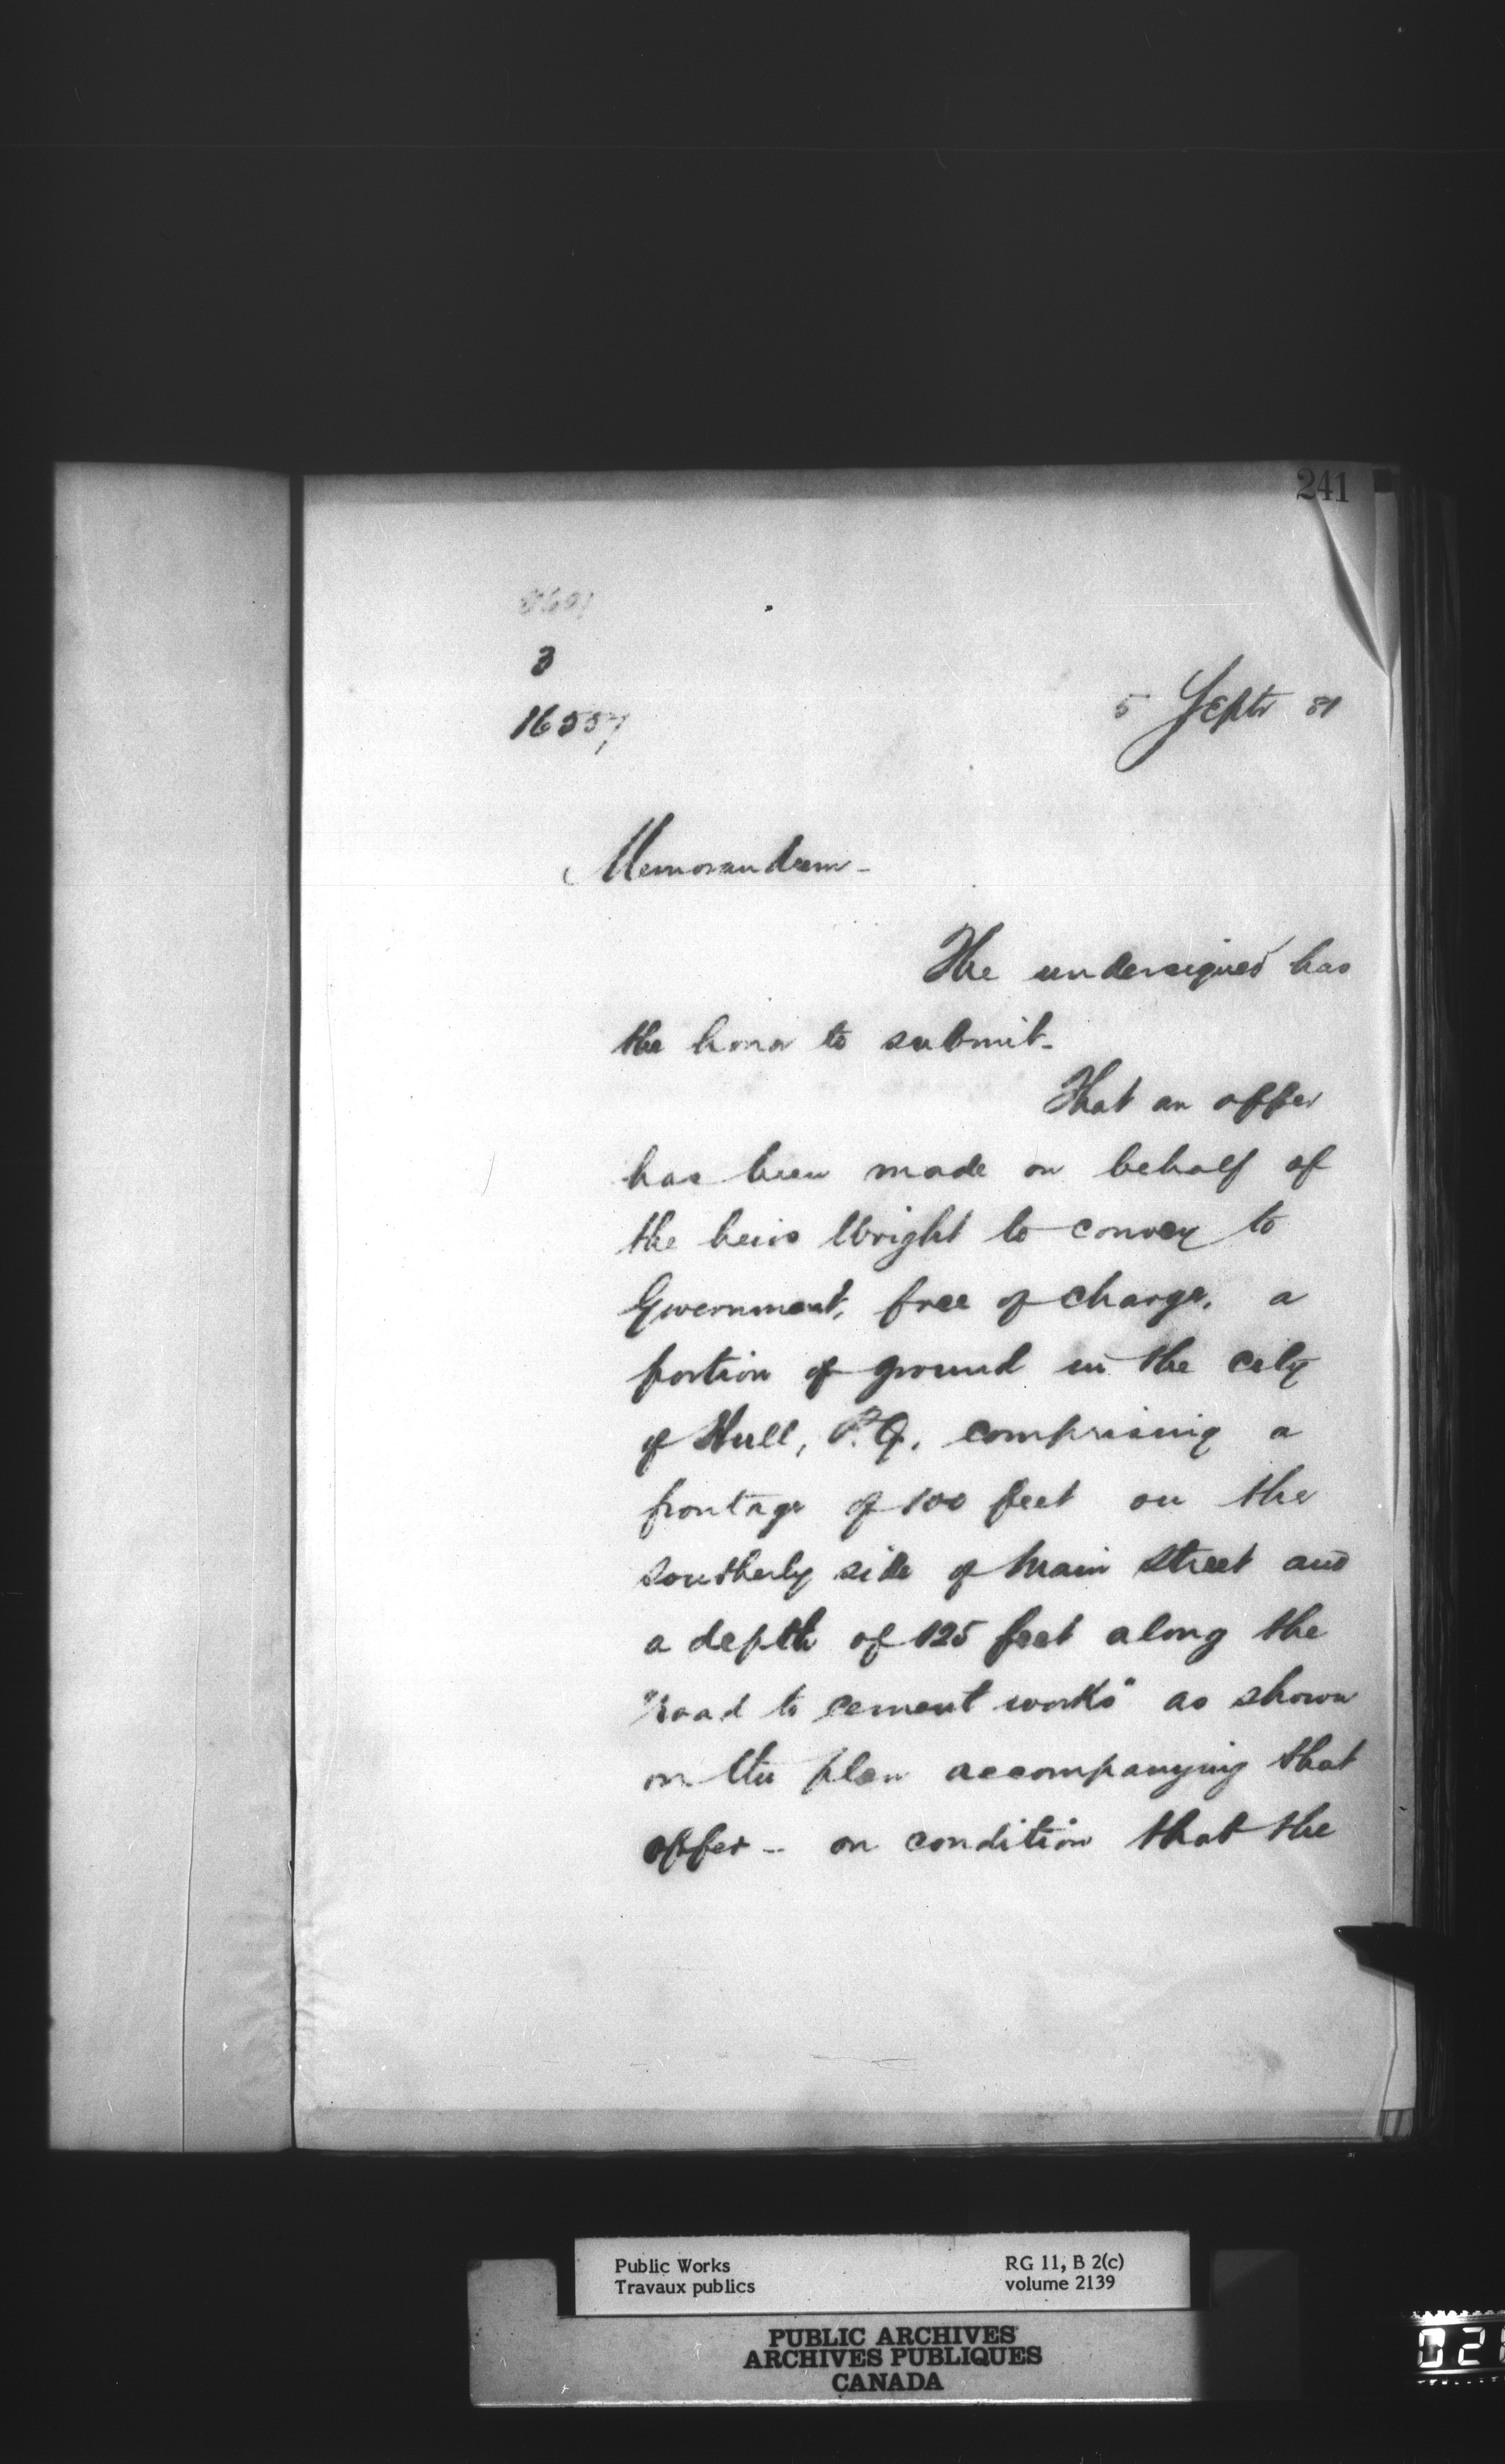 241
3
16557
5 Septr 81
Memorandum -
The undersigned has
the honor to submit -
That an offer
has been made on behalf of
the heirs Wright to convey to
Government, free of charge, a
portion of ground in the city
of Hull, P.Q. comprising a
frontage of 100 feet on the
southerly side of Main street and
a depth of 125 feet along the
"road to cement works" as shown
on the plan accompanying that
offer - on condition that the
Public Works
Travaux publics
RG 11, B 2(c)
volume 2139
PUBLIC ARCHIVES
ARCHIVES PUBLIQUES
CANADA